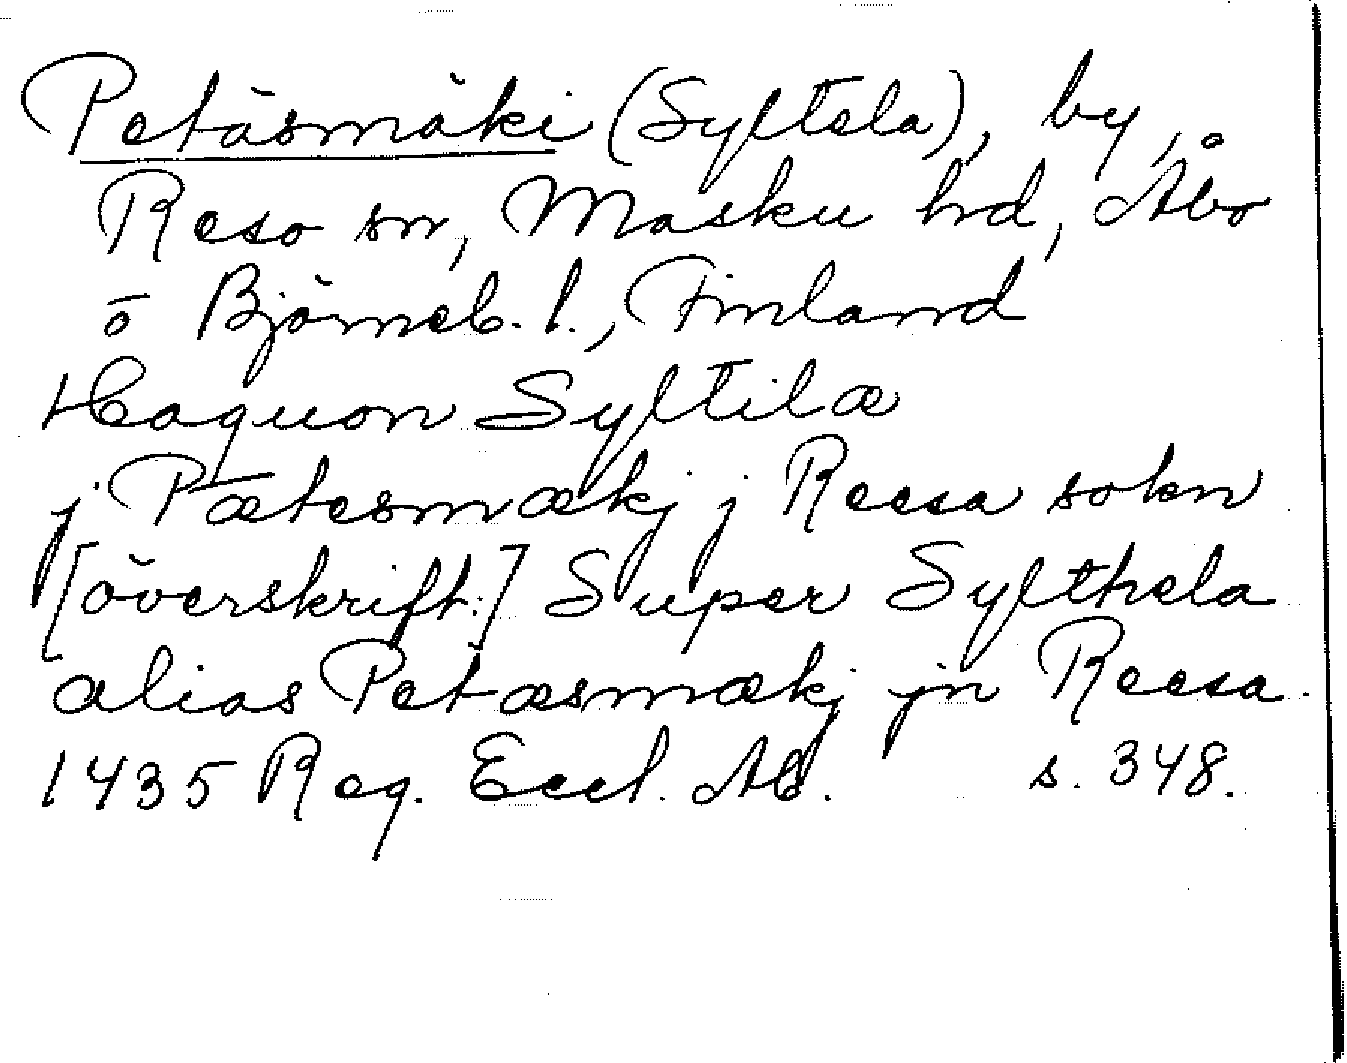 Petäsmäki (Syltela), by,
Reso sn, Masku hd, Åbo
o Björneb. l., Finland
Haquon Syltilæ
j Pætesmækj j Reesa sokn
[överskrift:] Super Sylthela
alias Petæsmækj jn Reesa
1435 Reg. Eccl. Ab. s. 348.